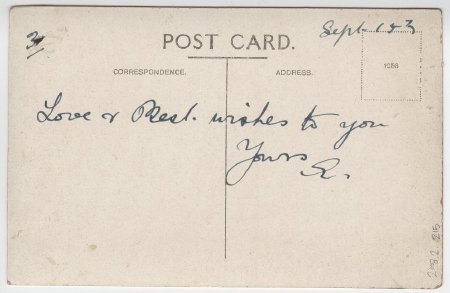 3
Sept 1 & 3
POST CARD.
CORRESPONDENCE. ADDRESS.
1056
Love & Best. wishes to you
Yours